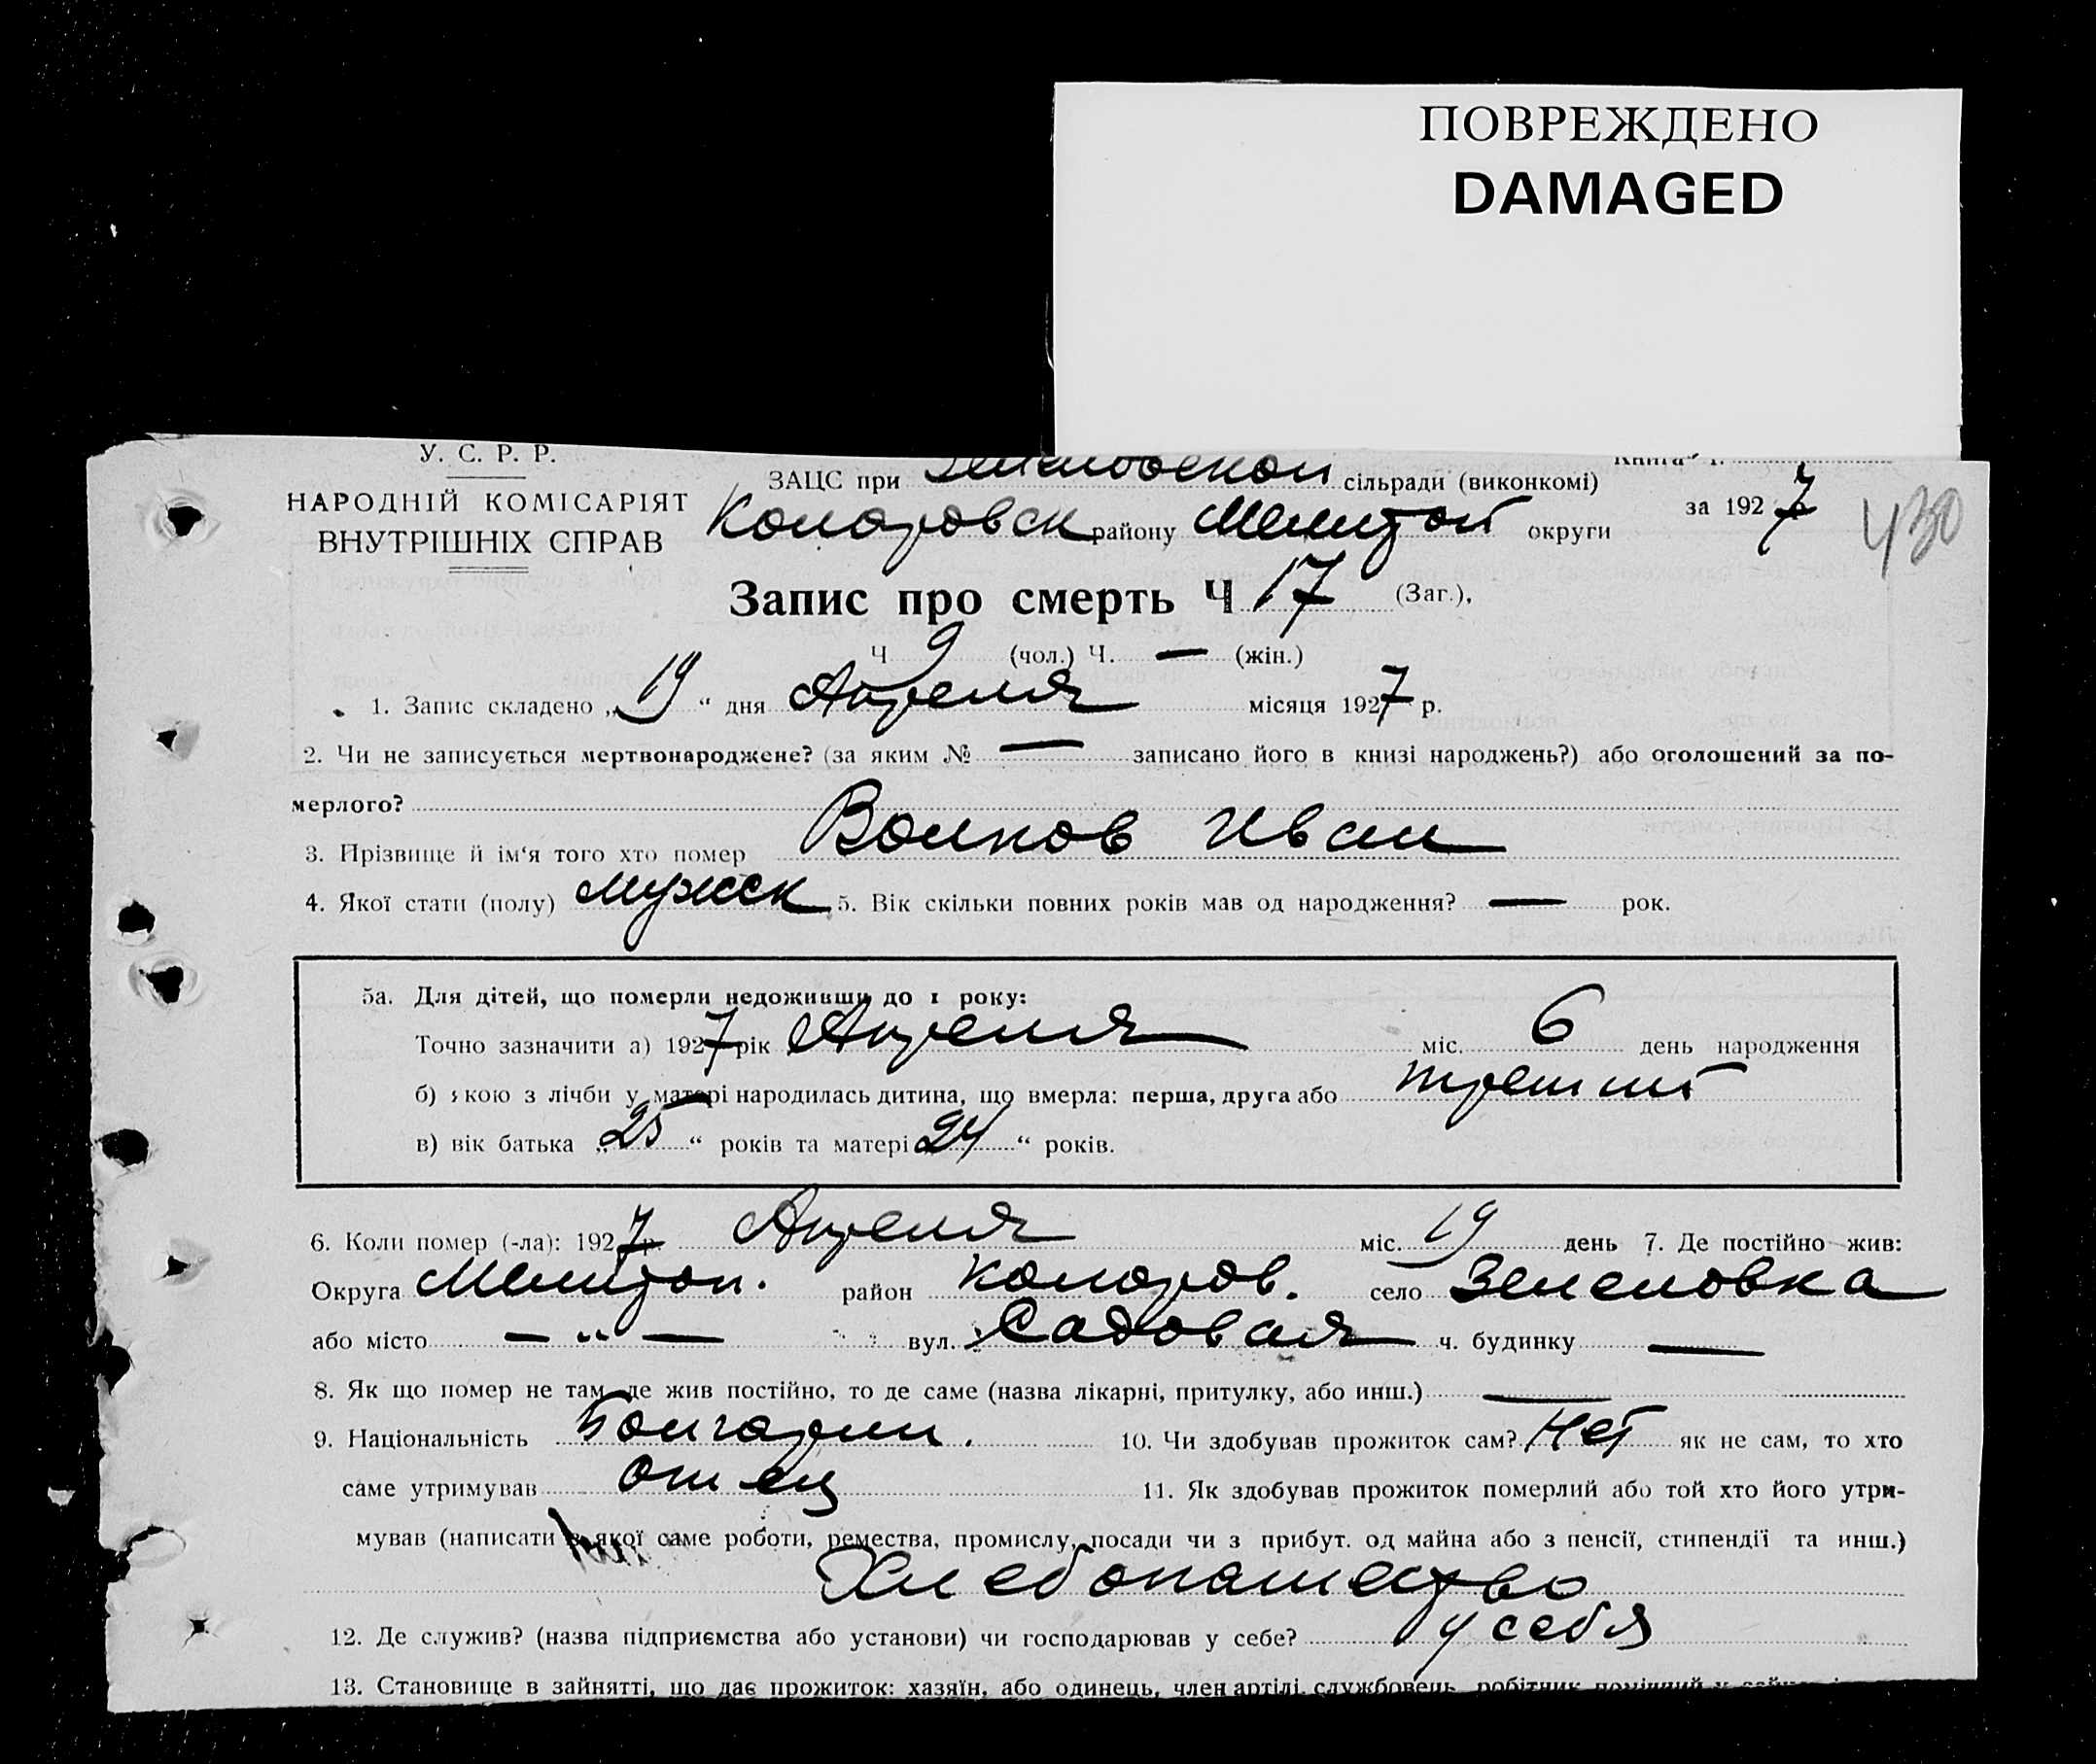 ПОВРЕЖДЕНО
DAMAGED
У. С. Р. Р.
НАРОДНІЙ КОМІСАРІЯТ
ВНУТРІШНІХ СПРАВ
ЗАЦС при сільради (виконкомі)
Коларовск району Мелитой округи
за 1927
430
Запис про смерть Ч 17 (Заг.),
Ч 9 (чол.) Ч. — (жін.)
1. Запис складено „19“ дня Апреля місяця 1927 р.
2. Чи не записується мертвонароджене? (за яким № — записано його в книзі народжень?) або оголошений за по-
мерлого?
3. Прізвище й ім‘я того хто помер Волков Иван
4. Якої стати (полу) мужск 5. Вік скільки повних років мав од народження? — рок.
5а. Для дітей, що померли недоживши до 1 року:
Точно зазначити а) 1927 рік Апреля міс. 6 день народження
б) якою з лічби у матері народилась дитина, що вмерла: перша, друга або третий
в) вік батька „25“ років та матері „24“ років.
6. Коли помер (-ла): 1927 р. Апреля міс. 19 день 7. Де постійно жив:
Округа Мелитоп. район Коларов. село Зеленовка
або місто — „ — вул. Садовая ч. будинку —
8. Як що помер не там, де жив постійно, то де саме (назва лікарні, притулку, або инш.) —
9. Національність Болгарин. 10. Чи здобував прожиток сам? Нет як не сам, то хто
саме утримував отец 11. Як здобував прожиток померлий або той хто його утри-
мував (написати з якої саме роботи, ремества, промислу, посади чи з прибут. од майна або з пенсії, стипендії та инш.)
Хлебопашество
12. Де служив? (назва підприємства або установи) чи господарював у себе? у себя
13. Становище в зайнятті, що дає прожиток: хазяїн, або одинець, член артілі, службовець, робітник